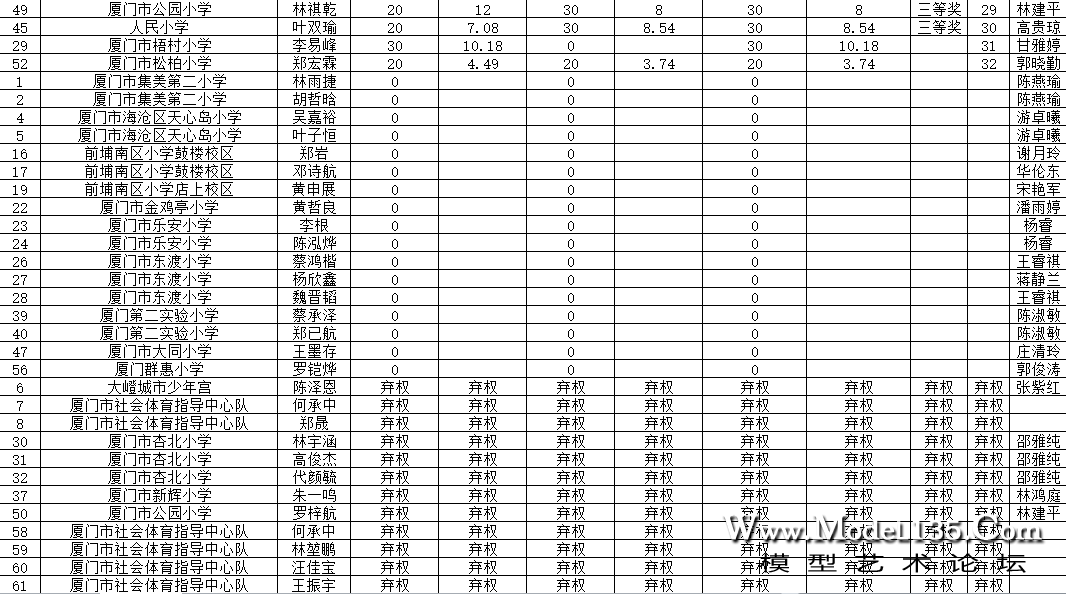 49 厦门市公园小学 林祺乾 20 12 30 8 30 8 三等奖 29 林建平
45 人民小学 叶双瑜 20 7.08 30 8.54 30 8.54 三等奖 30 高贵琼
29 厦门市梧村小学 李易峰 30 10.18 0 30 10.18 31 甘雅婷
52 厦门市松柏小学 郑宏霖 20 4.49 20 3.74 20 3.74 32 郭晓勤
1 厦门市集美第二小学 林雨捷 0 0 0 陈燕瑜
2 厦门市集美第二小学 胡哲晗 0 0 0 陈燕瑜
4 厦门市海沧区天心岛小学 吴嘉裕 0 0 0 游卓曦
5 厦门市海沧区天心岛小学 叶子恒 0 0 0 游卓曦
16 前埔南区小学鼓楼校区 郑岩 0 0 0 谢月玲
17 前埔南区小学鼓楼校区 邓诗航 0 0 0 华伦东
19 前埔南区小学店上校区 黄申展 0 0 0 宋艳军
22 厦门市金鸡亭小学 黄哲良 0 0 0 潘雨婷
23 厦门市乐安小学 李根 0 0 0 杨睿
24 厦门市乐安小学 陈泓烨 0 0 0 杨睿
26 厦门市东渡小学 蔡鸿楷 0 0 0 王睿祺
27 厦门市东渡小学 杨欣鑫 0 0 0 蒋静兰
28 厦门市东渡小学 魏晋韬 0 0 0 王睿祺
39 厦门第二实验小学 蔡承泽 0 0 0 陈淑敏
40 厦门第二实验小学 郑已航 0 0 0 陈淑敏
47 厦门市大同小学 王墨存 0 0 0 庄清玲
56 厦门群惠小学 罗铠烨 0 0 0 郭俊涛
6 大嶝城市少年宫 陈泽恩 弃权 弃权 弃权 弃权 弃权 弃权 弃权 弃权 张紫红
7 厦门市社会体育指导中心队 何承中 弃权 弃权 弃权 弃权 弃权 弃权 弃权 弃权
8 厦门市社会体育指导中心队 郑晟 弃权 弃权 弃权 弃权 弃权 弃权 弃权 弃权
30 厦门市杏北小学 林宇涵 弃权 弃权 弃权 弃权 弃权 弃权 弃权 弃权 邵雅纯
31 厦门市杏北小学 高俊杰 弃权 弃权 弃权 弃权 弃权 弃权 弃权 弃权 邵雅纯
32 厦门市杏北小学 代颜毓 弃权 弃权 弃权 弃权 弃权 弃权 弃权 弃权 邵雅纯
37 厦门市新辉小学 朱一鸣 弃权 弃权 弃权 弃权 弃权 弃权 弃权 弃权 林鸿庭
50 厦门市公园小学 罗梓航 弃权 弃权 弃权 弃权 弃权 弃权 弃权 弃权 林建平
58 厦门市社会体育指导中心队 何承中 弃权 弃权 弃权 弃权 弃权 弃权 弃权 弃权
59 厦门市社会体育指导中心队 林堃鹏 弃权 弃权 弃权 弃权 弃权 弃权 弃权 弃权
60 厦门市社会体育指导中心队 汪佳宝 弃权 弃权 弃权 弃权 弃权 弃权 弃权 弃权
61 厦门市社会体育指导中心队 王振宇 弃权 弃权 弃权 弃权 弃权 弃权 弃权 弃权
Www.Model135.Com
模型艺术论坛